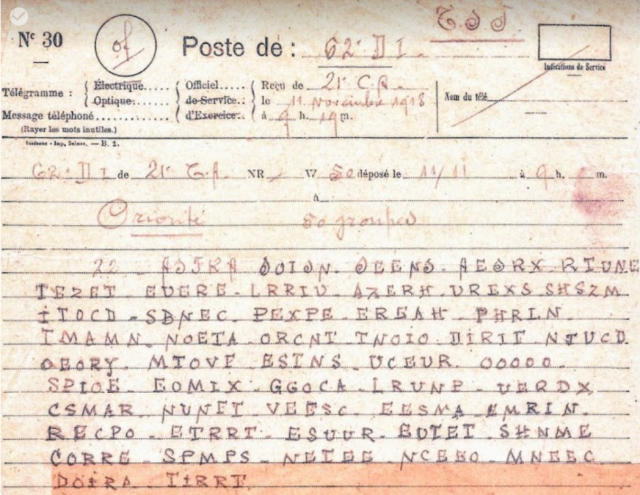 T.S.J.
Nº 30
of
Poste de : 62e DI.
Indications de Service
Télégramme : { Électrique..... Optique.....
Message téléphoné.............
(Rayer les mots inutiles.)
Officiel..... de Service... d'Exercice..
Reçu de 21e C.A.
le 11 novembre 1918
à 9 h. 19 m.
Nom du télé
B. 2.
62e DI de 21e C.A. NR W 50 déposé le 11/11 à 9 h. m.
à
Priorité 50 groupes
22 - SOION - AESRX - RTUNE
TEZET - EUERE - LRRIU - AZERH - UREXS - SHSZM
ITOCD - SBNEC - PEXPE - EREAH - PHRLN
IMAMN - NOETA - ORCNT - TNOIO - DIRIF - NTUCD
OEORY - MTOVF - ESINS - UCEUR - OOOOO
SPIOE - EOMIX - GGOCA - LRUNP - UERDX
CSMAR - NUNET - VEESC - EESMA - EMRIN
RECPO - ETRRT - ESUUR - EUTET - SHNME
CORRE - SPMPS - NETEE - NCEEO - MNEEC
DOIRA - TIRRT